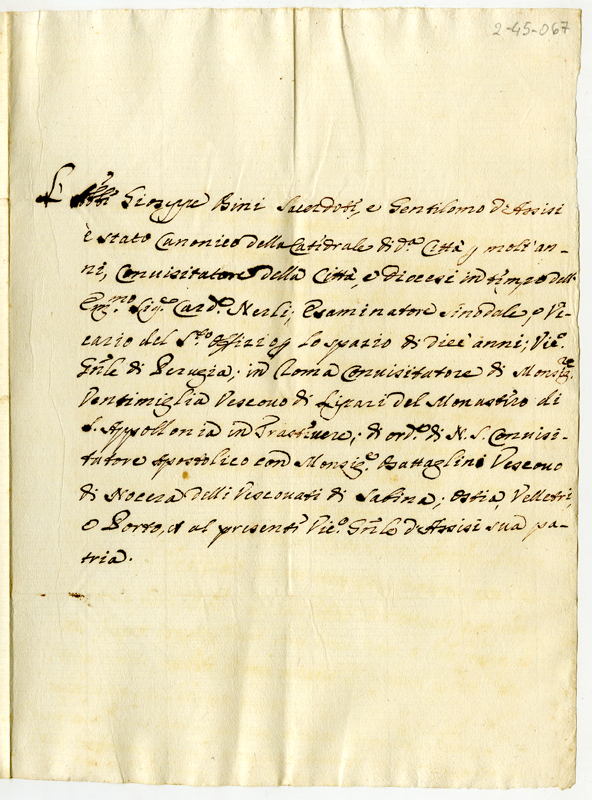 2-45-067
Gioseppe Bini Sacerdoti, e Gentilomo D'Assisi
è stato Canonico della Catidrale di d.ª Città p molt'an-
ni, Convisitatore della Città, e Diocesi in timpo dell'
Em.mo Sig.r Card.l Nerli; Esaminatore Sinodale, e Vi-
cario del S.to Offizio p lo spazio di dieci anni; Vic.o
Gnle di Perugia; in Roma Convisitatore di Monsig.re
Ventimiglia Vescovo di Lipari del Monastiro di
S. Appollonia in Trastivere; di ord.e di N. S. Convisi-
tatore Apostolico con Monsig.r Battaglini Vescovo
di Nocera delli Vescovati di Sabina; Ostia, Velletri,
e Porto, et al presenti Vic.o Gnle D'Assisi sua pa-
tria.